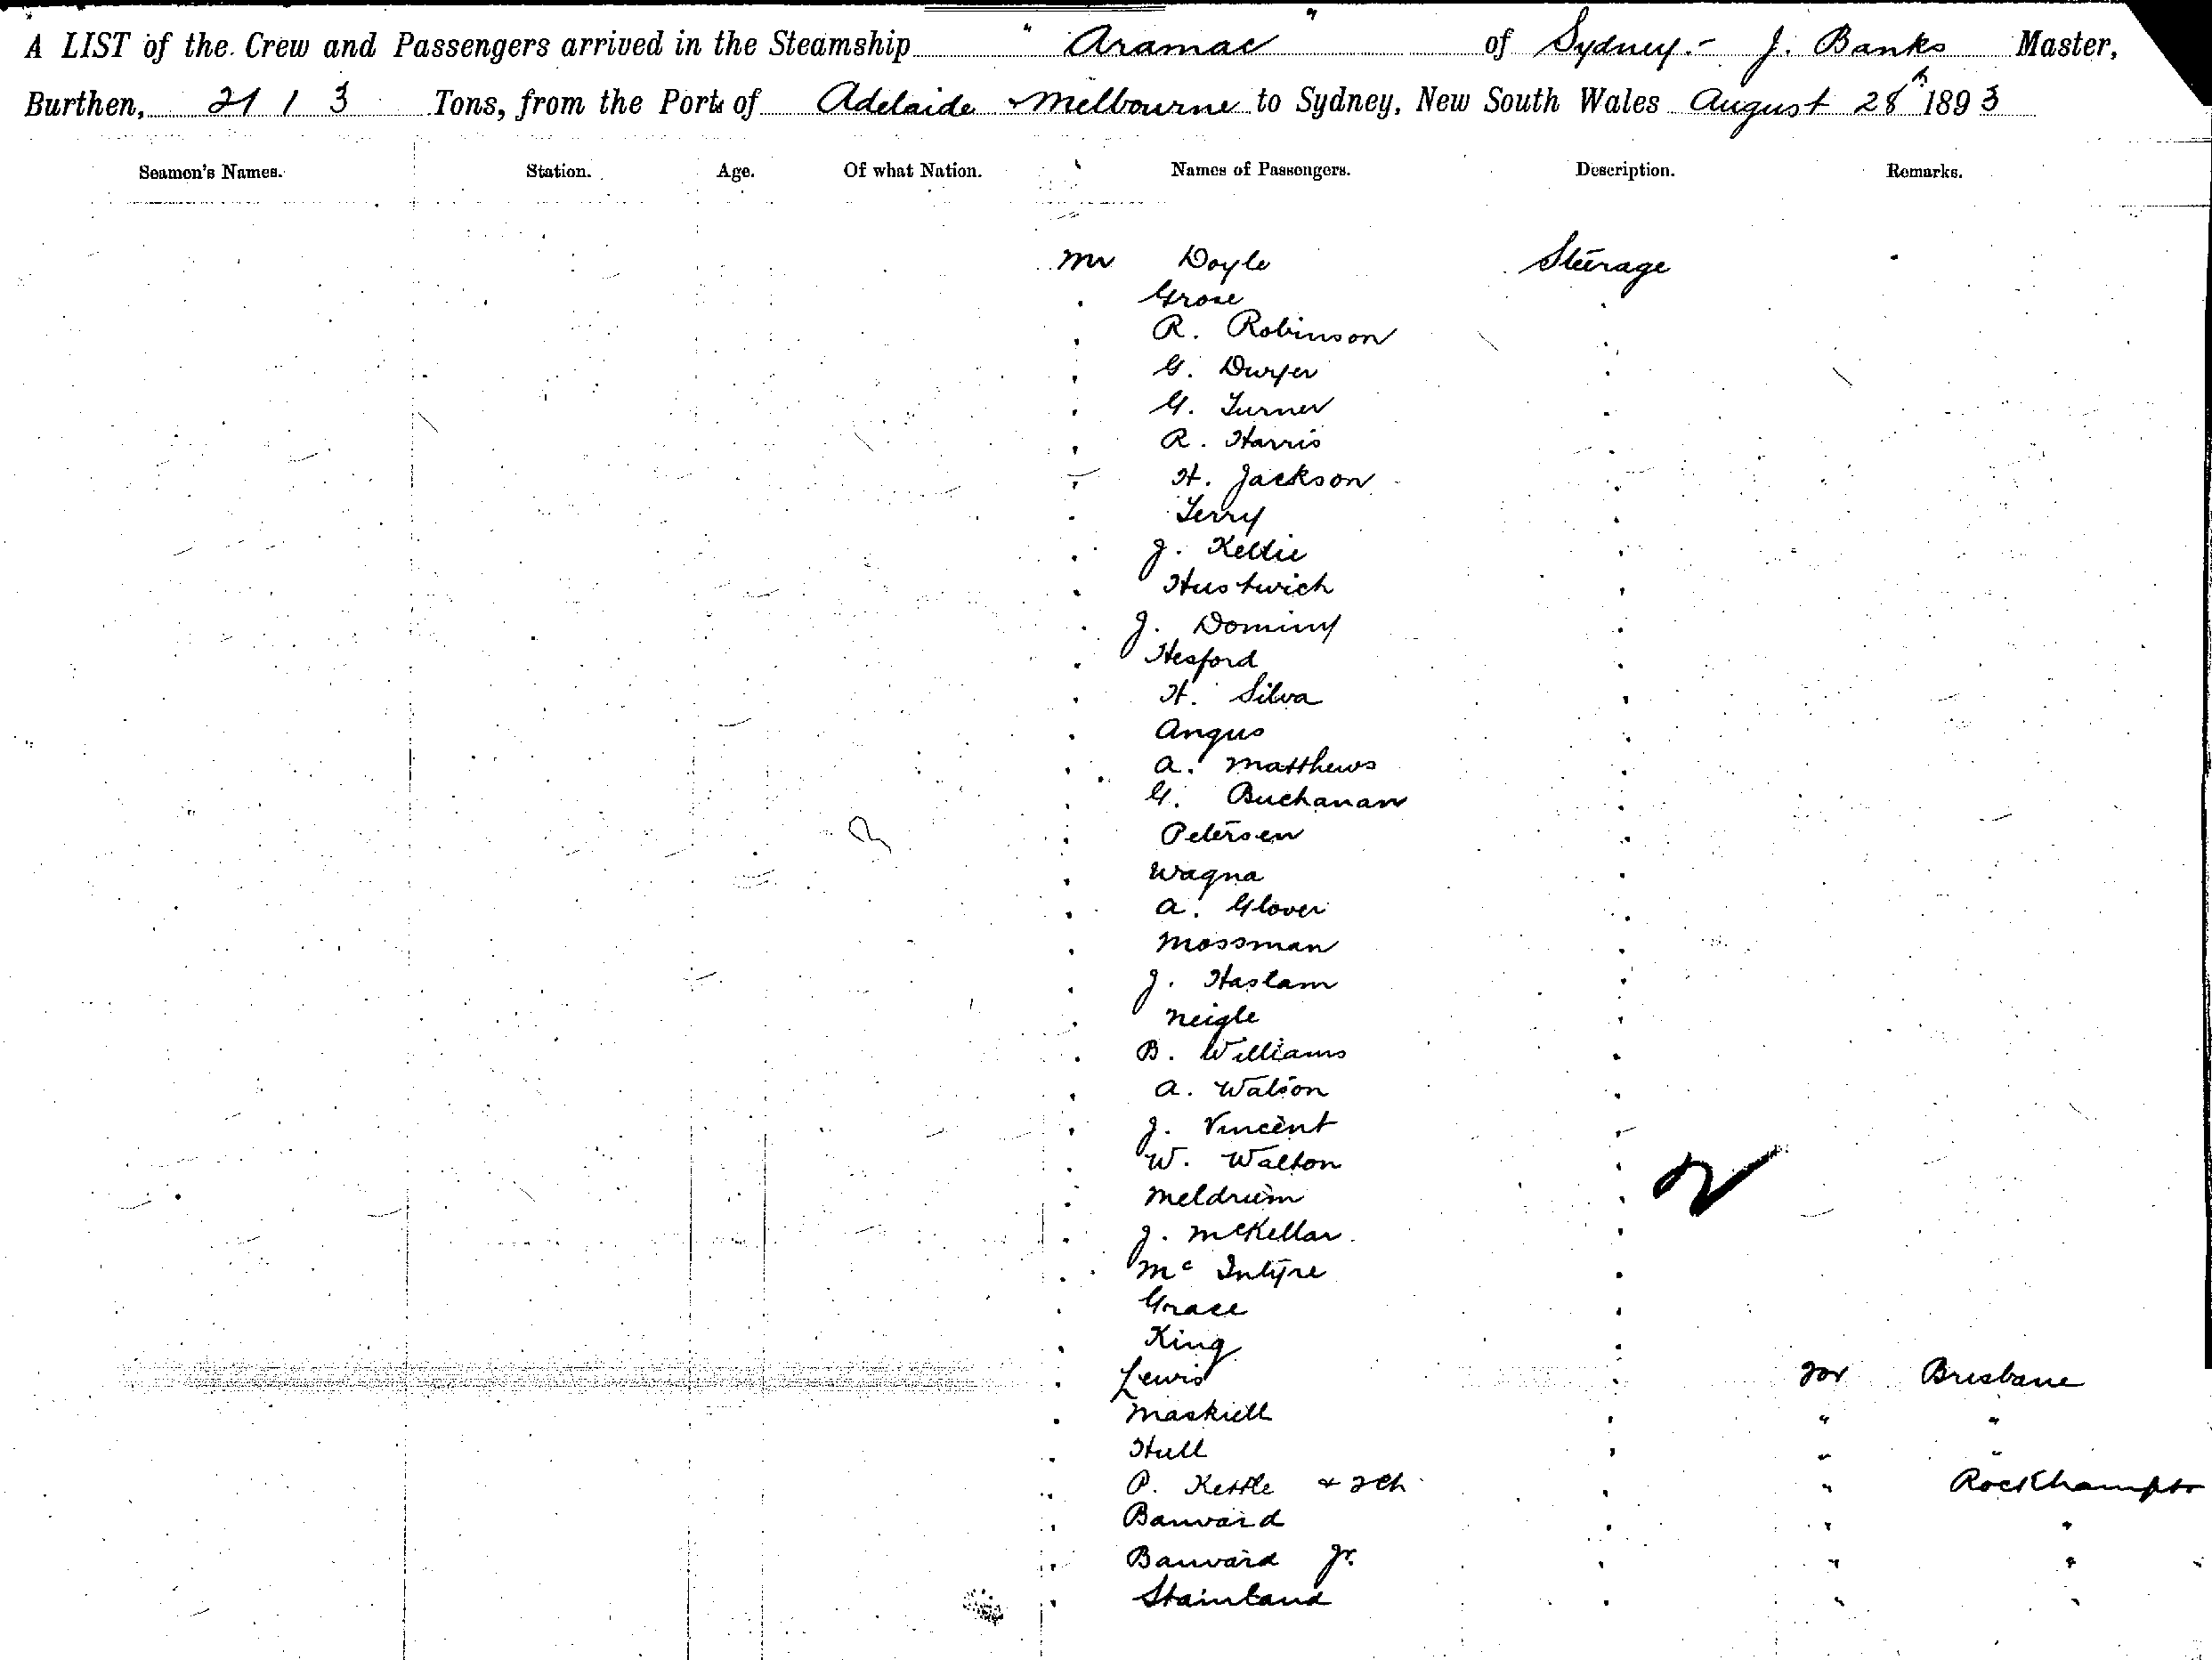 A LIST of the Crew and Passengers arrived in the Steamship "Aramac" of Sydney.- J. Banks Master,
Burthen, 2113 Tons, from the Ports of Adelaide & Melbourne to Sydney, New South Wales August 28th 1893
Seamen's Names. Station. Age. Of what Nation. Names of Passengers. Description. Remarks.
Mr Doyle Steerage
Grose
R. Robinson
G. Dwyer
G. Turner
R. Harris
H. Jackson
Terry
J. Keltie
Hustwich
J. Dominy
Hesford
H. Silva
Angus
A. Matthews
G. Buchanan
Petersen
Wagna
A. Glover
Mossman
J. Haslam
Neigle
B. Williams
A. Watson
J. Vincent
W. Walton
Meldrum
J. McKellar
Mc Intyre
Grace
King
Lewis for Brisbane
Maskiell " "
Hull " "
P. Kettle & 2 ch " Rockhampto
Banvard " "
Banvard Jr. " "
Stainland " "